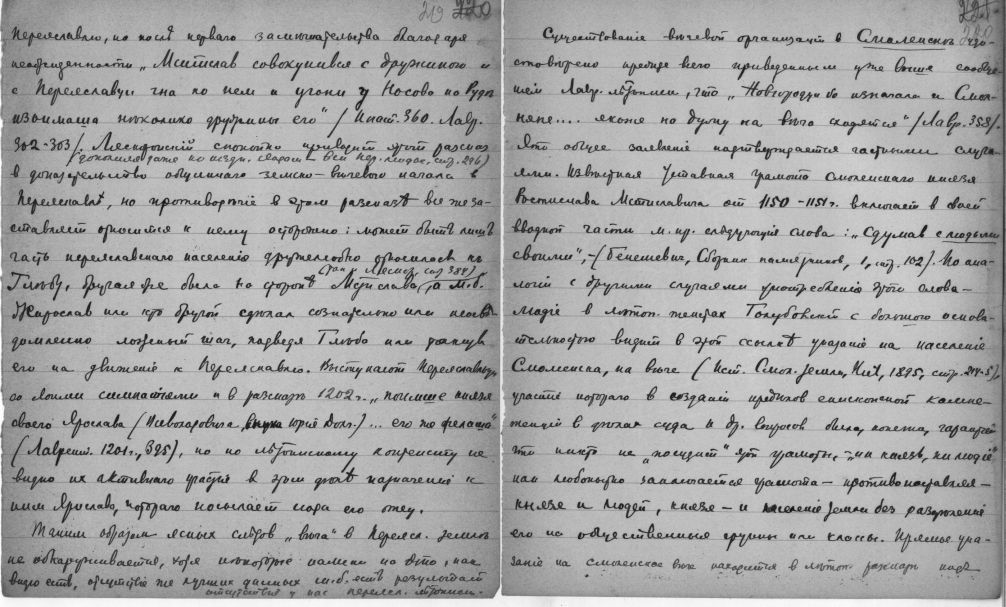 219 220
Переяславлю, но послѣ перваго замѣшательства благодаря
неожиданности „Мстислав совокупився с дружиною и
с Переяславци гна по нем и угони у Носова на Рудѣ
изоимаша нѣколико дружины его" / Ипат. 360. Лавр.
302-303/. Лясkоронскій спокойно приводит этот разсказ
в доказательство обычнаго земско-вѣчевого начала в
Переяславлѣ, но противорѣчіе в этом разсказѣ все же за-
ставляет относится к нему осторожно: может быть лишь
часть переяславскаго населенія дружелюбно относилась к
Глѣбу, другая же была на сторонѣ Мстислава, а м.б.
Жирослав или кто другой сдѣлал сознательно или неосвѣ-
домленно ложный шаг, подведя Глѣба или толкнув
его на движеніе к Переяславлю. Выступают Переяславцы
со своими симпатіями и в разсказѣ 1202 г. „поимше князя
своего Ярослава (Всеволодовича, внука Юрія Долг.)...
(Лаврент. 1201 г., 395), но по лѣтописному контексту не
видно их активнаго участія в этом дѣлѣ назначенія к
ним Ярослава, котораго посылает сюда его отец.
Таким образом ясных слѣдов „вѣча" в Переясл. землѣ
не обнаруживается, хотя нѣкоторые намеки на это, как
видно есть, отсутствіе же лучших данных м.б. есть результат
отсутствія у нас переясл. лѣтописи.
221 220
Существованіе вѣчевой организаціи в Смоленскѣ удо-
стовѣрено прежде всего приведенным уже выше сообще-
ніем Лавр. лѣтописи, что „Новгородци бо изначала и Смол-
няне.... якоже на думу на вѣча сходятся" /Лавр. 358/.
Это общее заявленіе подтверждается частными случа-
ями. Извѣстная Уставная грамота смоленскаго князя
Ростислава Мстиславича от 1150-1151 г. включает в своей
вводной части м. пр. слѣдующія слова: „Сдумав с людьми
своими", - (Бенешевич, Сборник памятников, 1, стр. 102). По ана-
логіи с другими случаями употребленія этого слова -
людіе в лѣтоп. текстах Голубовскій с большою основа-
тельностью видит в этой ссылкѣ указаніе на населеніе
Смоленска, на вѣче (Ист. Смол. земли, Кіев, 1895, стр. 214-5),
участіе котораго в созданіи предѣлов епископской компе-
тенціи в дѣлах суда и др. вопросов была, конечно, гарантіей
что никто не „посудит" этой грамоты, - „ни князь, ни людіе"
как любопытно заключается грамота - противопоставляя -
князя и людей, князя - и населеніе земли без разделенія
его на общественные группы или классы. Прямые ука-
занія на смоленское вѣче находятся в лѣтоп. разсказѣ под